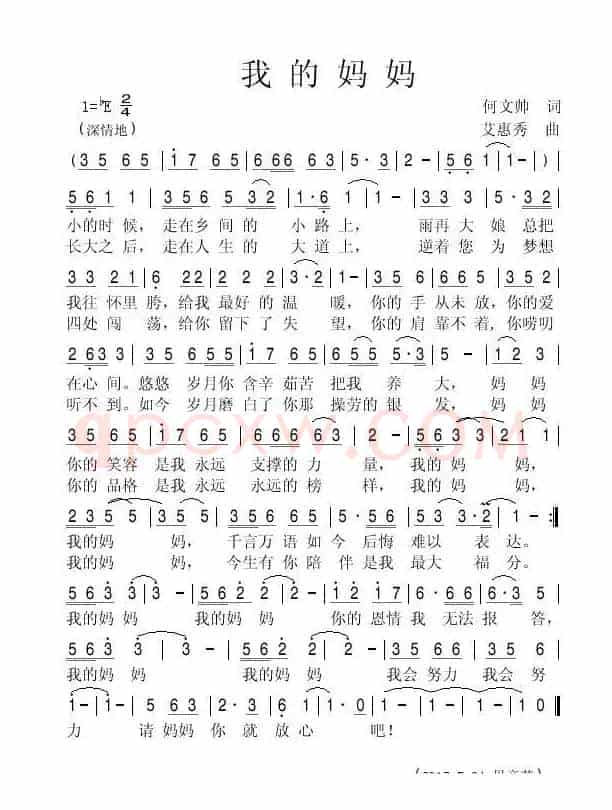 我的妈妈
1=♭E 2/4
何文帅 词
(深情地)
艾惠秀 曲
(3 5 6 5 | 1 7 6 5 | 6 66 6 3 | 3 5 · | 3 2 | 2 - | 5 6 1 | 1 - | 1 - )
5 6 1 1 | 2 5 3 3 | 2 2 3 | 1 · 6 | 1 - | 3 3 3 | 2 1 6 | 5 3 3
小的时候，走在乡间的 小路上， 雨再大 娘总把
长大之后，走在人生的 大道上， 逆着您 为梦想
3 3 2 1 | 6 2 2 | 2 1 2 3 | 3 · 2 | 1 - | 3 5 6 | 6 6 5 | 3 5 6
我往怀里胯，给我最好的温 暖，你的手从未放，你的爱
四处闯 荡，给你留下了失 望，你的肩靠不着，你唠叨
2 6 3 3 | 3 5 3 5 | 1 7 6 5 | 6 5 5 | 5 · 3 | 5 - | 1 2 3
在心间。悠悠 岁月你含辛茹苦把我 养 大， 妈妈
听不到。如今 岁月磨白了你那操劳的银 发， 妈妈
3 5 6 5 | 1 7 6 5 | 6 6 6 6 3 | 3 · 2 | 2 - | 5 6 3 | 3 3 | 2 1 1
你的笑容 是我永远 支撑的力 量， 我的妈 妈，
你的品格 是我永远 永远的榜 样， 我的妈 妈，
我的妈 妈， 千言万语如今后悔 难以 表 达。
我的妈 妈， 今生有你陪伴是我 最大 福 分。
我的妈妈 我的妈妈 你的恩情我 无法报 答，
我的妈妈 我的妈妈 我会努力我会努
力 请妈妈你就放心 吧！
qpcxw.com